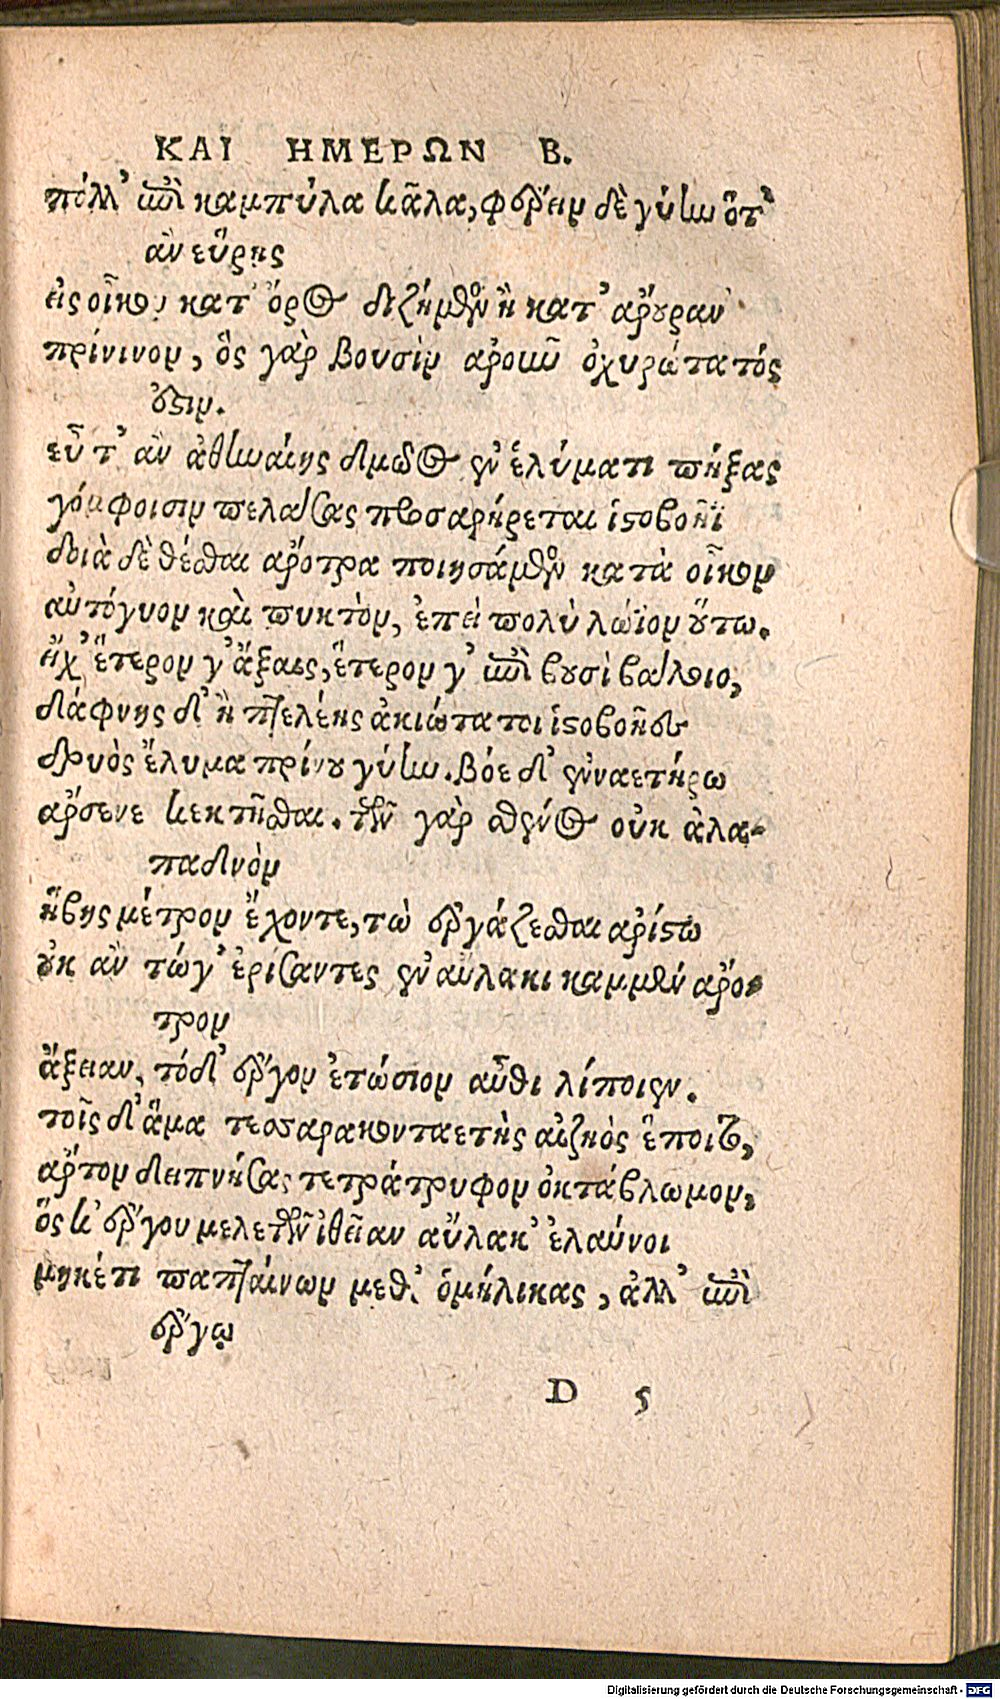 ΚΑΙ ΗΜΕΡΩΝ Β.
πόλλ' ἐπὶ καμπύλα κᾶλα, φέρειν δὲ γύην ὅτ'
ἂν εὕρῃς
εἰς οἶκον κατ' ὄρος διζήμενος ἢ κατ' ἄρουραν
πρίνινον, ὃς γὰρ βουσὶν ἀροῦν ὀχυρώτατός
ἐστιν.
εὖτ' ἂν ἀθηναίης δμωὸς ἐν ἐλύματι πήξας
γόμφοισιν πελάσας προσαρήρεται ἱστοβοῆϊ
δοιὰ δὲ θέσθαι ἄροτρα ποιησάμενος κατὰ οἶκον
αὐτόγυον καὶ πυκτὸν, ἐπεὶ πολὺ λώϊον οὕτω.
εἴ χ' ἕτερον γ' ἄξαις, ἕτερον γ' ἐπὶ βουσὶ βάλοιο,
δάφνης δ' ἢ πτελέης ἀκιώτατοι ἱστοβοῆες
δρυὸς ἔλυμα πρίνου γύην. βόε δ' ἐνναετήρω
ἄρσενε κεκτῆσθαι. τῶν γὰρ σθένος οὐκ ἀλα-
παδνὸν
ἥβης μέτρον ἔχοντε, τὼ ἐργάζεσθαι ἀρίστω
οὐκ ἂν τώγ' ἐρίσαντες ἐν αὔλακι καμμὲν ἄρο-
τρον
ἄξειαν, τὸ δ' ἔργον ἐτώσιον αὖθι λίποιεν.
τοῖς δ' ἅμα τεσσαρακονταετὴς αἰζηὸς ἕποιτο,
ἄρτον δειπνήσας τετράτρυφον ὀκτάβλωμον,
ὅς κ' ἔργου μελετῶν ἰθεῖαν αὔλακ' ἐλαύνοι
μηκέτι παπταίνων μεθ' ὁμήλικας, ἀλλ' ἐπὶ
ἔργῳ
D 5
Digitalisierung gefördert durch die Deutsche Forschungsgemeinschaft - DFG